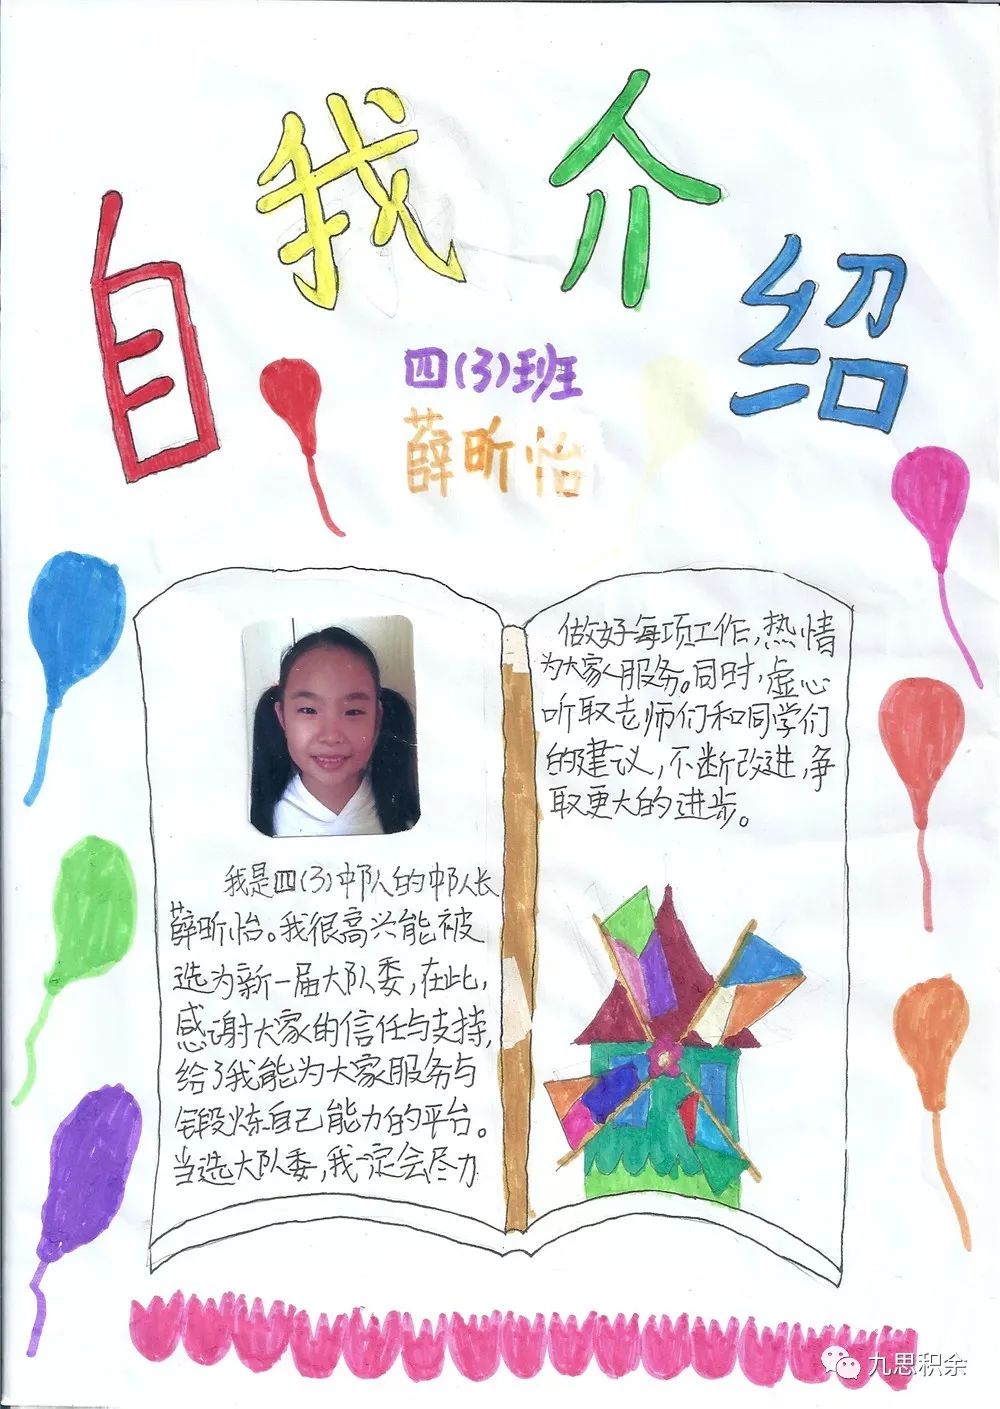 自我介绍
四(3)班
薛昕怡
我是四(3)中队的中队长
薛昕怡。我很高兴能被
选为新一届大队委,在此,
感谢大家的信任与支持,
给了我能为大家服务与
锻炼自己能力的平台。
当选大队委,我一定会尽力
做好每项工作,热情
为大家服务。同时,虚心
听取老师们和同学们
的建议,不断改进,争
取更大的进步。
九思积余